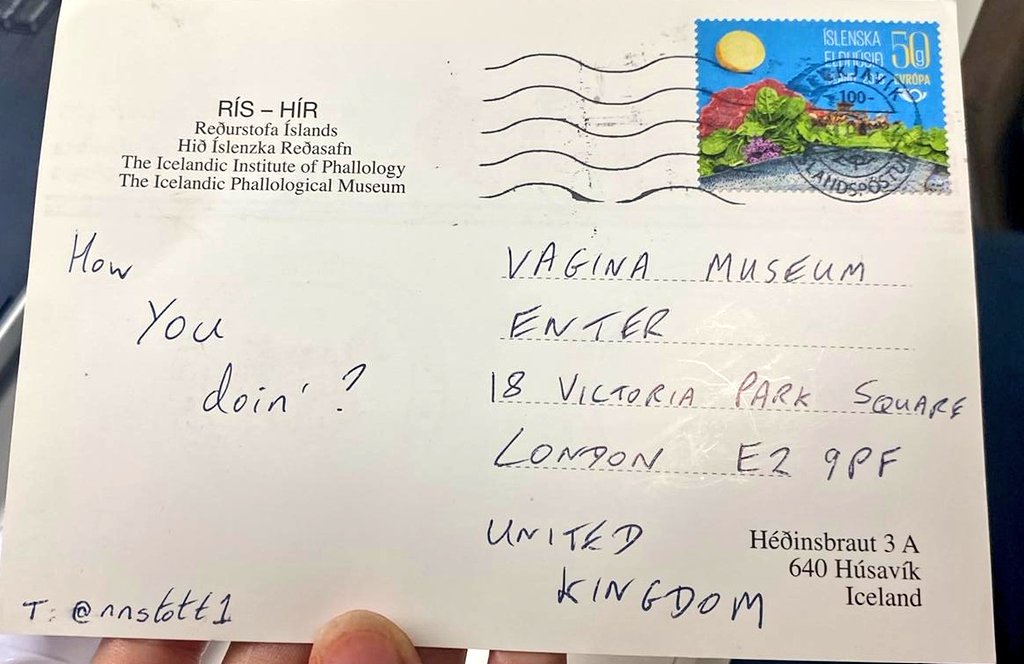 RÍS – HÍR
Reðurstofa Íslands
Hið Íslenzka Reðasafn
The Icelandic Institute of Phallology
The Icelandic Phallological Museum
How
You
doin' ?
T: @nnstott1
ÍSLENSKA
ELDHÚSIÐ
50g
EVRÓPA
-100-
VAGINA MUSEUM
ENTER
18 VICTORIA PARK SQUARE
LONDON E2 9PF
UNITED
KINGDOM
Héðinsbraut 3 A
640 Húsavík
Iceland